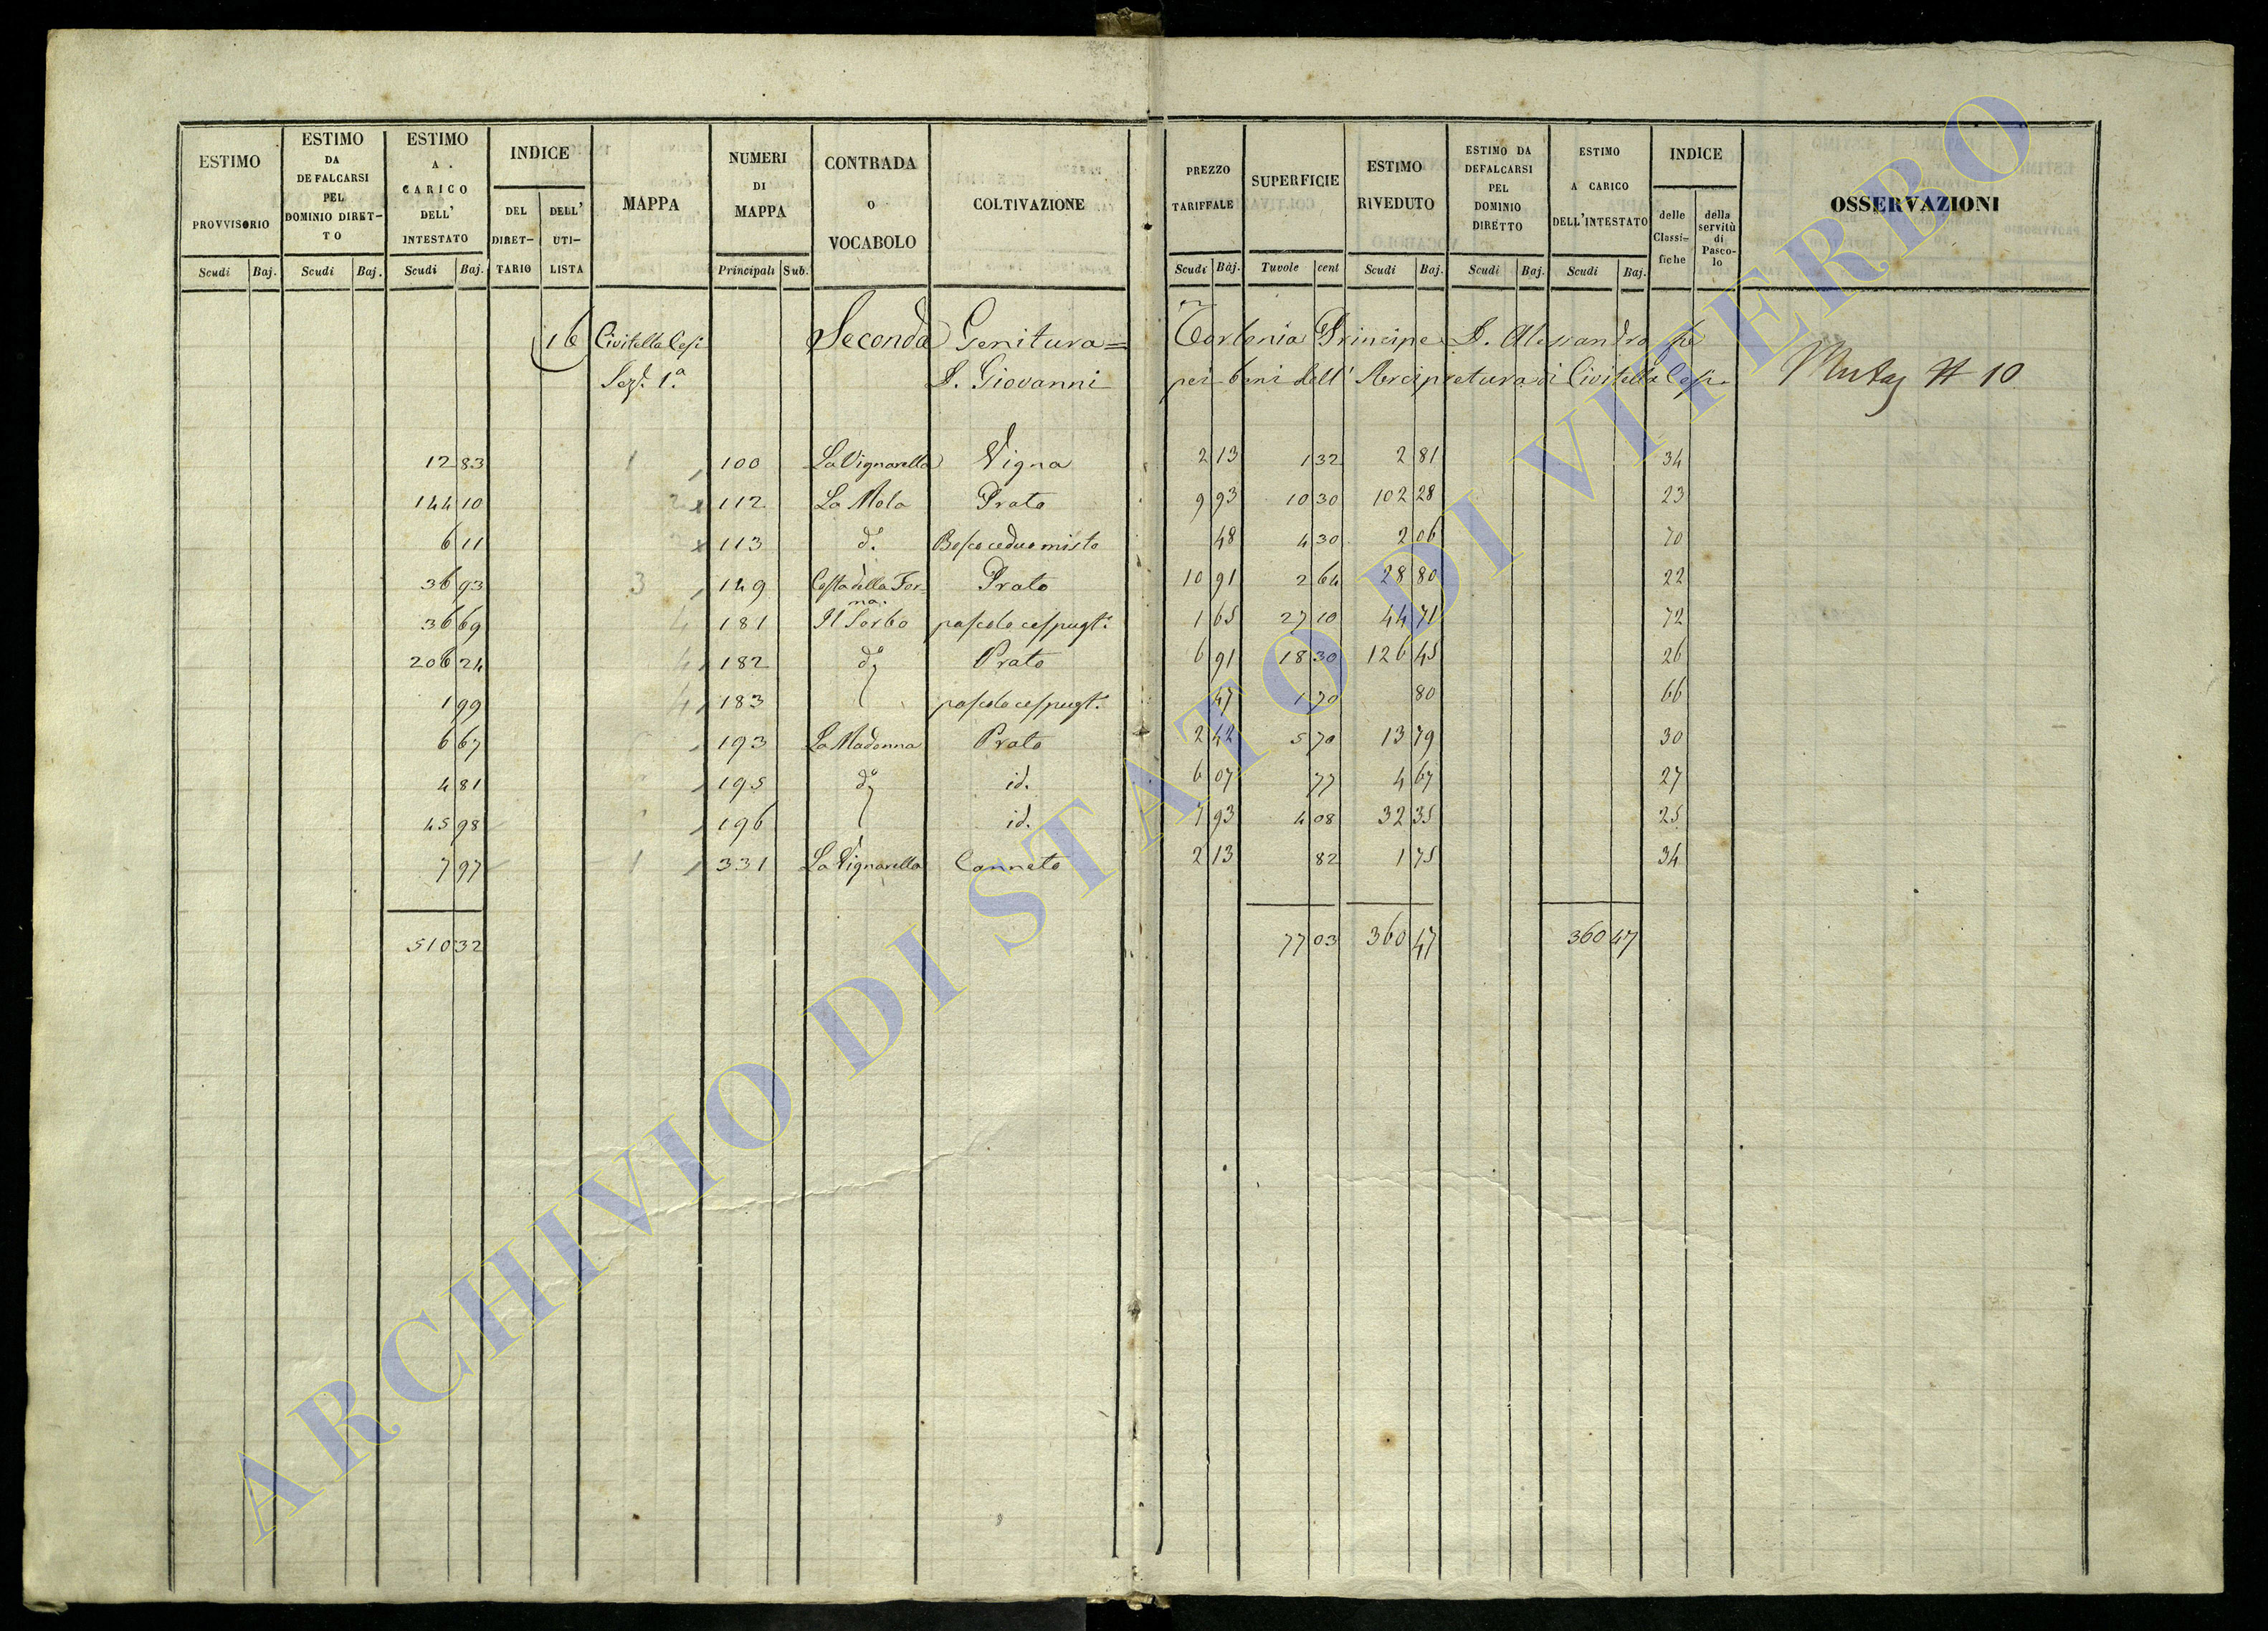 ESTIMO PROVVISORIO Scudi Baj.
ESTIMO DA DEFALCARSI PEL DOMINIO DIRET- TO Scudi Baj.
ESTIMO A CARICO DELL' INTESTATO Scudi Baj.
INDICE DEL DIRET- TARIO DELL' UTI- LISTA
MAPPA
NUMERI DI MAPPA Principali Sub.
CONTRADA O VOCABOLO
COLTIVAZIONE
PREZZO TARIFFALE Scudi Baj.
SUPERFICIE Tavole cent
ESTIMO RIVEDUTO Scudi Baj.
ESTIMO DA DEFALCARSI PEL DOMINIO DIRETTO Scudi Baj.
ESTIMO A CARICO DELL'INTESTATO Scudi Baj.
INDICE delle Classi- fiche della servitù di Pasco- lo
OSSERVAZIONI
16 Civitella Cesi Seconda Genitura = Torlonia Principe D. Alessandro
Sez. 1.a D. Giovanni pei beni dell' Arcipretura di Civitella Cesi 10
12 83 1 100 La Vignarella Vigna 2 13 1 32 2 81 34
144 10 2 x 112 La Mola Prato 9 93 10 30 102 28 23
6 11 x 113 do. Bosco ceduo misto 48 4 30 2 06 70
36 93 3 149 Costa della For- Prato 10 91 2 64 28 80 22
na.
36 69 4 181 Il Sorbo pascolo cespugto. 1 65 27 10 44 71 72
206 24 4 182 do Prato 6 91 18 30 126 45 26
1 99 4 183 pascolo cespugto. 47 1 70 80 66
6 67 193 La Madonna Prato 2 42 5 70 13 79 30
4 81 195 do id. 6 07 77 4 67 27
45 98 196 id. 7 93 4 08 32 35 25
7 97 1 331 La Vignarella Canneto 2 13 82 1 75 34
510 32 77 03 360 47 360 47
ARCHIVIO DI STATO DI VITERBO